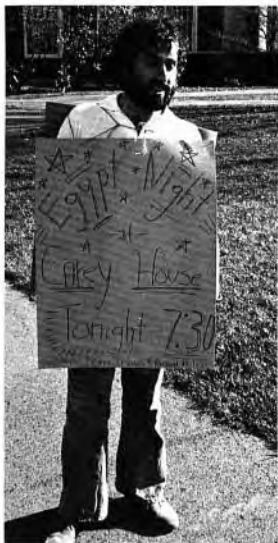 Egypt Night
at
Corey House
Tonight 7:30